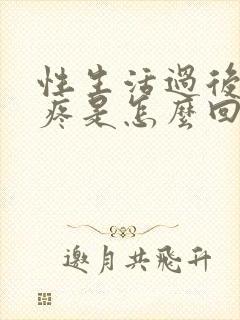 性生活過後
疼是怎麼回
邀月共飛升